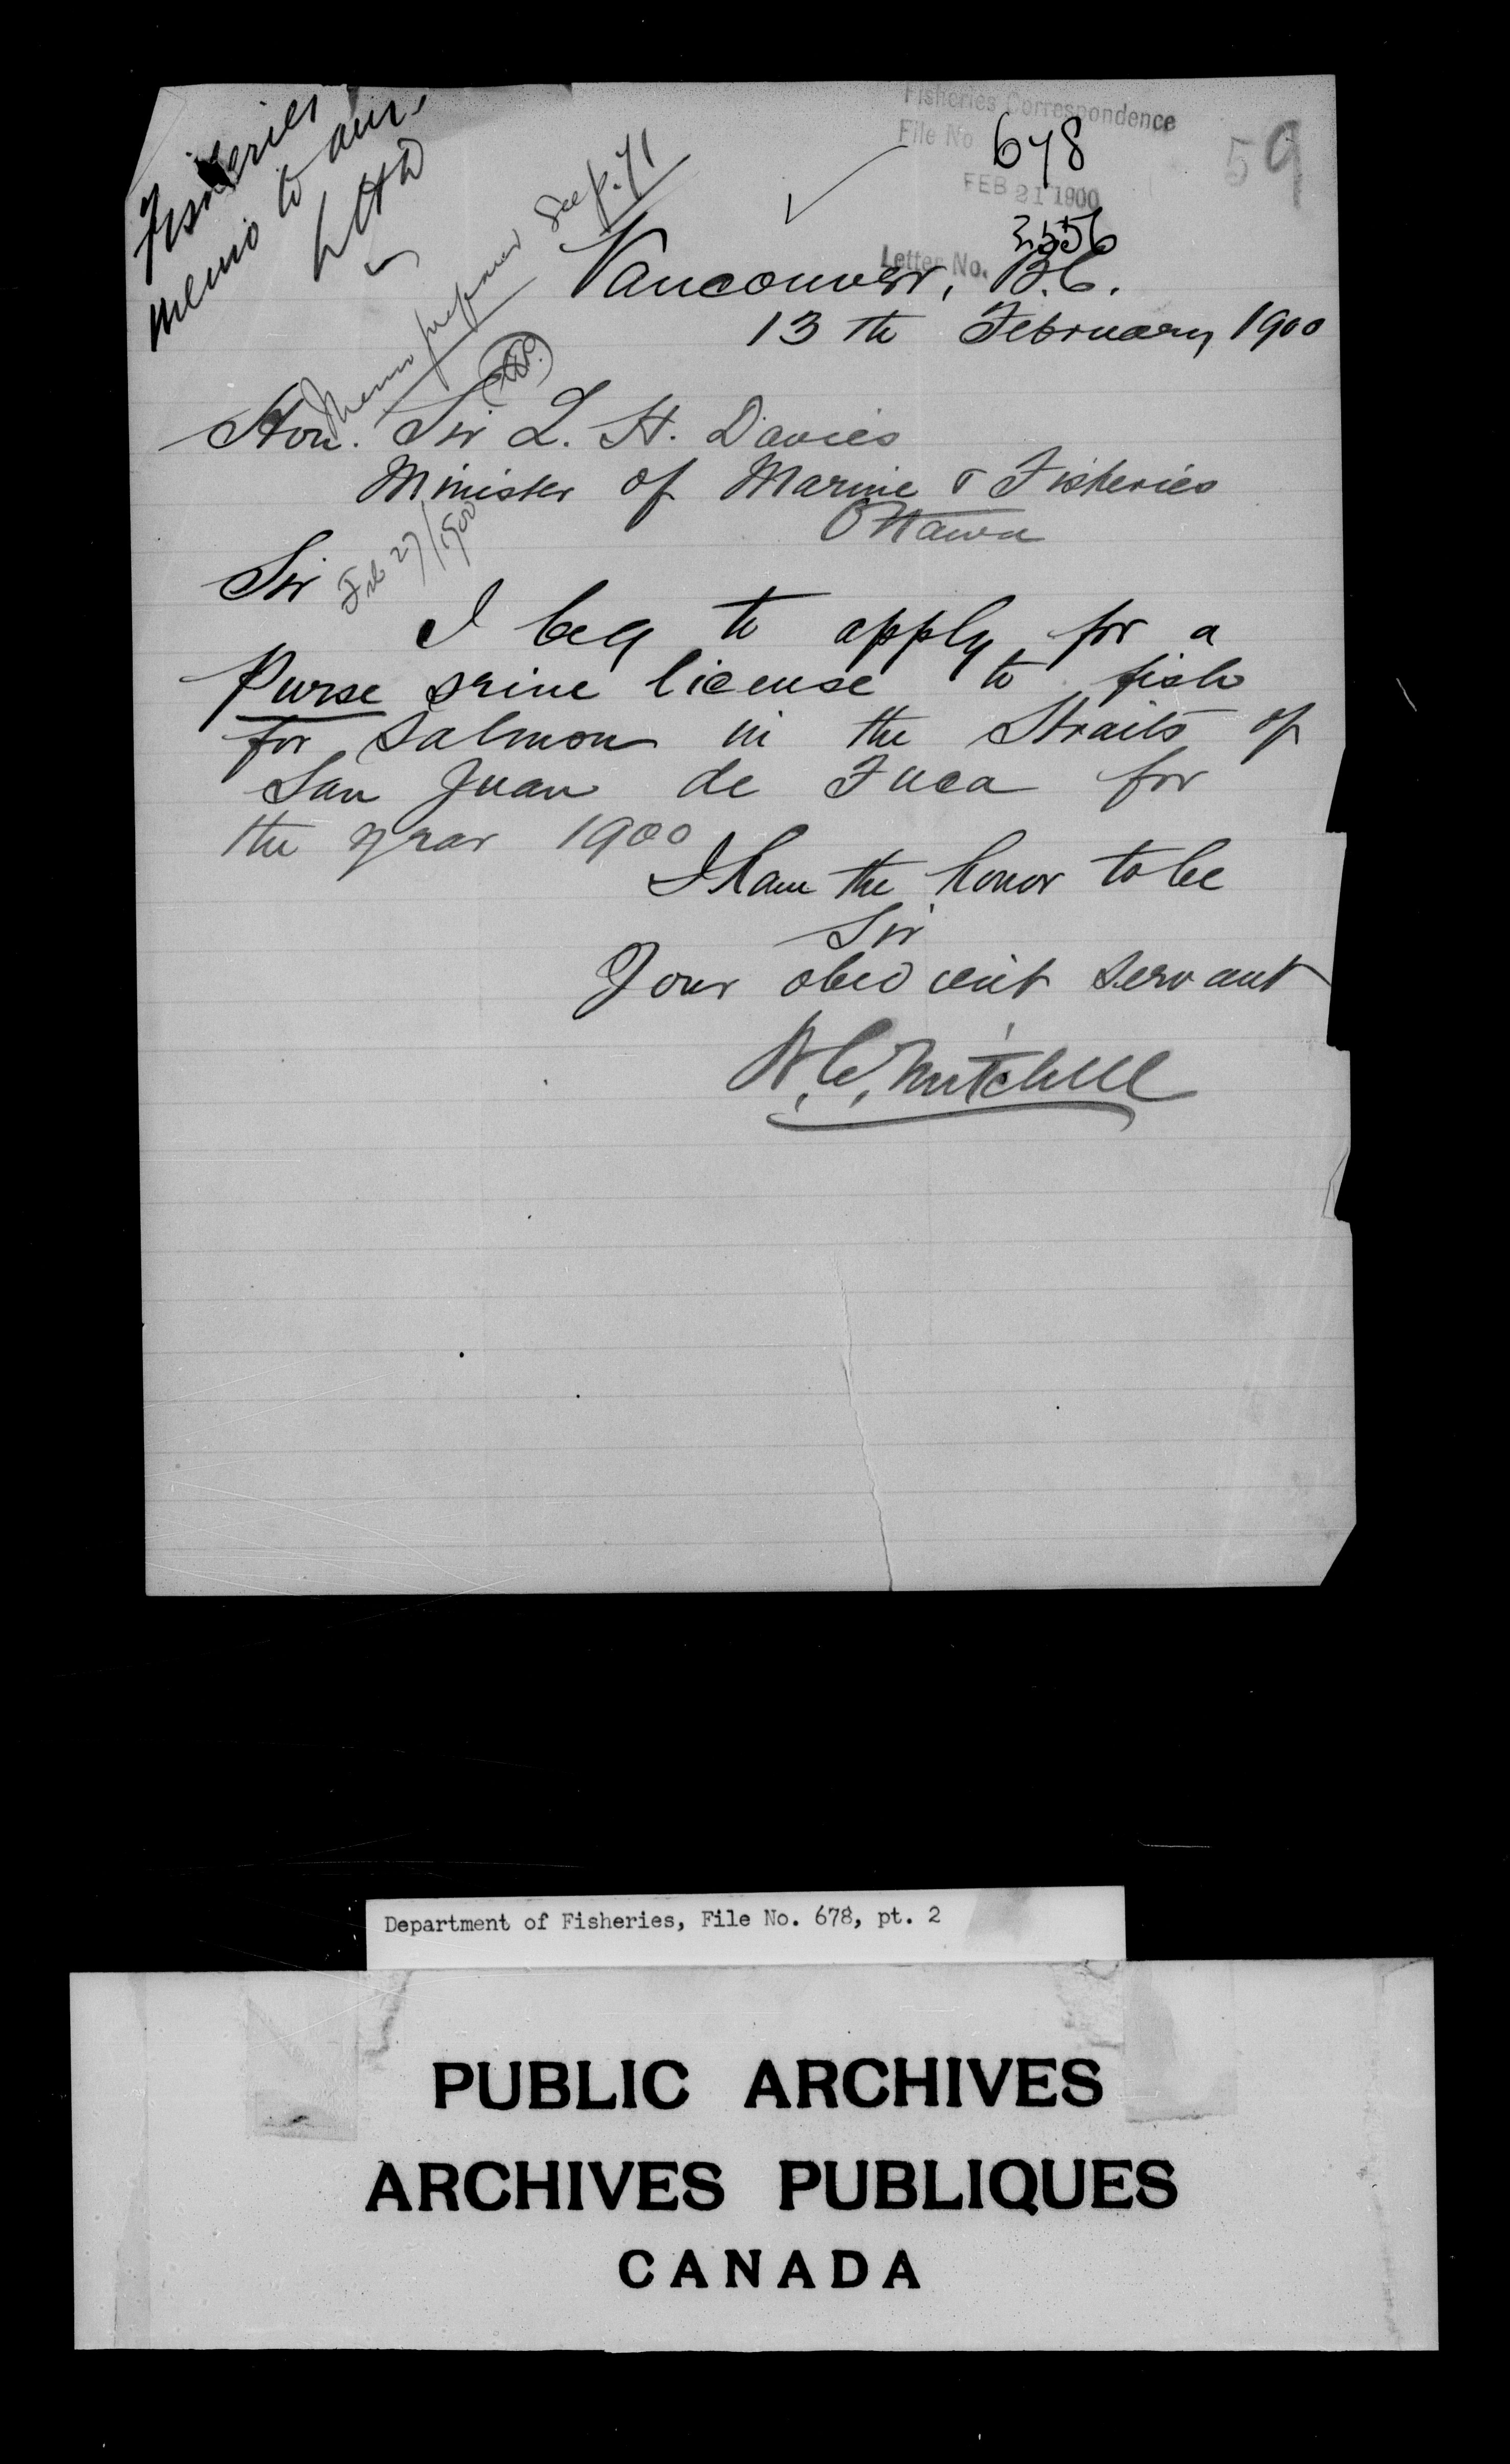 Fisheries
memo to
LHD
Memo prepared See p. 71
Feb 27/1900
Fisheries Correspondence
File No 678
59
FEB 21 1900
Letter No. 3556
Vancouver, B.C.
13th February 1900
Hon. Sir L. H. Davies
Minister of Marine & Fisheries
Ottawa
Sir
I beg to apply for a
Purse seine license to fish
for salmon in the Straits of
San Juan de Fuca for
the year 1900
I have the honor to be
Sir
Your obedient servant
Mitchell
Department of Fisheries, File No. 678, pt. 2
PUBLIC ARCHIVES
ARCHIVES PUBLIQUES
CANADA